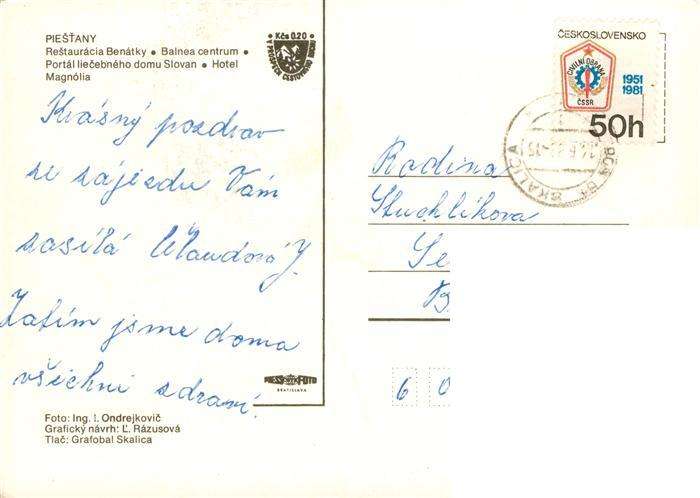 PIEŠŤANY
Reštaurácia Benátky • Balnea centrum •
Portál liečebného domu Slovan • Hotel
Magnólia
• Kčs 0.20 •
V PROSPECH CESTOVNÉHO RUCHU
ČESKOSLOVENSKO
CIVILNÍ OBRANA
ČSSR
1951
1981
50h
SKALICA
Krásný pozdrav
ze zájezdu Vám
zasílá J.
Zatím jsme doma
všichni zdraví.
Rodina
Stuchlíkova
Se
B
6 0
PRESSFOTO
BRATISLAVA
Foto: Ing. I. Ondrejkovič
Grafický návrh: Ľ. Rázusová
Tlač: Grafobal Skalica